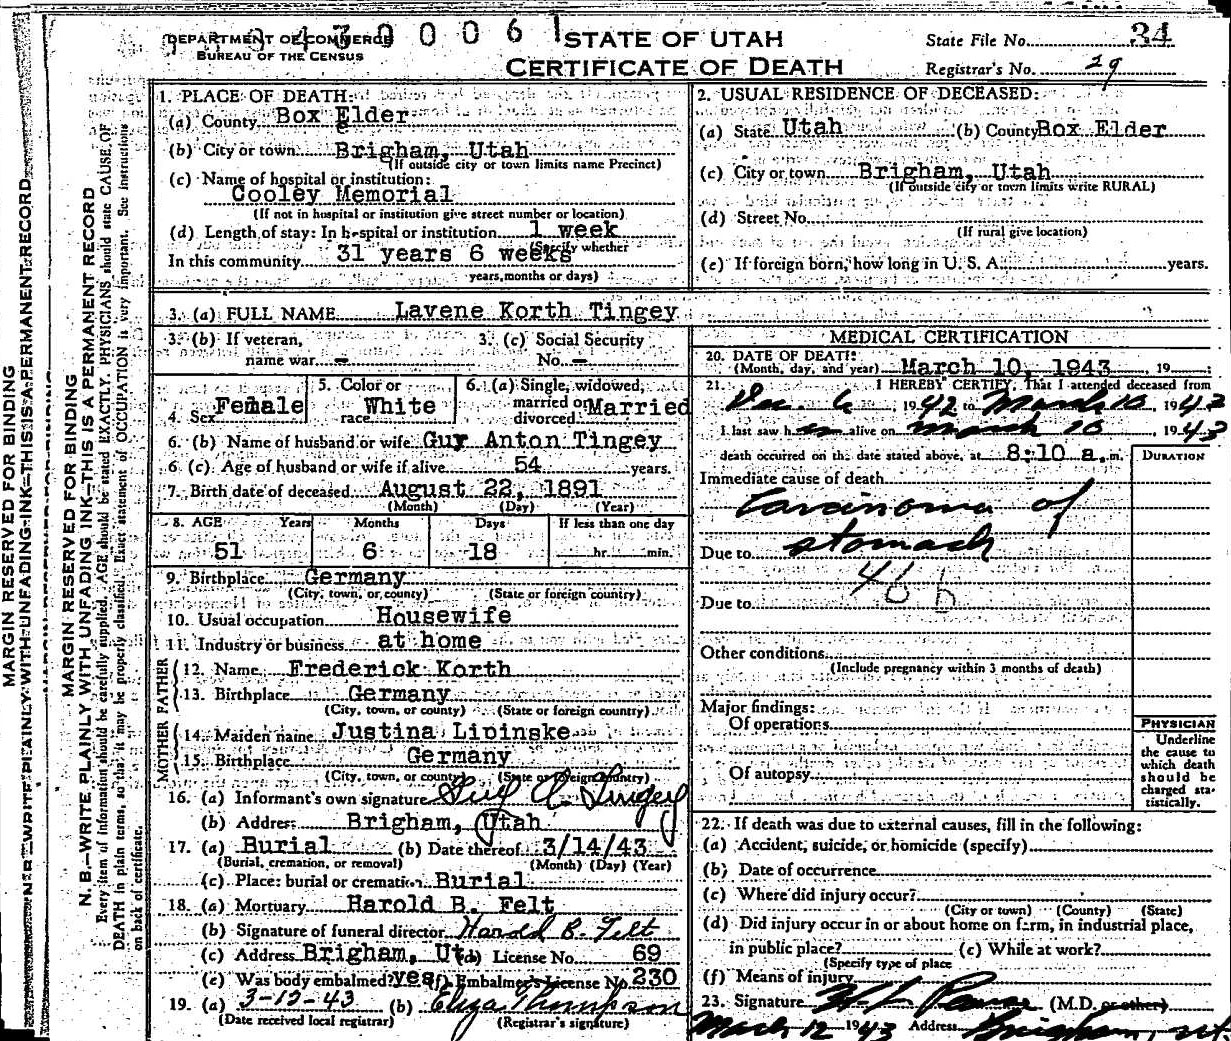 DEPARTMENT OF COMMERCE
BUREAU OF THE CENSUS
430006
STATE OF UTAH
CERTIFICATE OF DEATH
State File No. 34
Registrar's No. 29
MARGIN RESERVED FOR BINDING
WRITE PLAINLY WITH UNFADING INK—THIS IS A PERMANENT RECORD
MARGIN RESERVED FOR BINDING
N. B.—WRITE PLAINLY WITH UNFADING INK—THIS IS A PERMANENT RECORD
Every item of information should be carefully supplied. AGE should be stated EXACTLY. PHYSICIANS should state CAUSE OF
DEATH in plain terms, so that it may be properly classified. Exact statement of OCCUPATION is very important. See instructions
on back of certificate.
1. PLACE OF DEATH:
(a) County Box Elder
(b) City or town Brigham, Utah
(If outside city or town limits name Precinct)
(c) Name of hospital or institution:
Cooley Memorial
(If not in hospital or institution give street number or location)
(d) Length of stay: In hospital or institution 1 week
(Specify whether
In this community 31 years 6 weeks
years, months or days)
2. USUAL RESIDENCE OF DECEASED:
(a) State Utah (b) County Box Elder
(c) City or town Brigham, Utah
(If outside city or town limits write RURAL)
(d) Street No.
(If rural give location)
(e) If foreign born, how long in U. S. A. years.
3. (a) FULL NAME Lavene Korth Tingey
3. (b) If veteran, name war —
3. (c) Social Security No. —
4. Sex Female
5. Color or race White
6. (a) Single, widowed, married or divorced Married
6. (b) Name of husband or wife Guy Anton Tingey
6 (c). Age of husband or wife if alive 54 years.
7. Birth date of deceased August 22, 1891
(Month) (Day) (Year)
8. AGE Years Months Days If less than one day
51 6 18 hr. min.
9. Birthplace Germany
(City, town, or county) (State or foreign country)
10. Usual occupation Housewife
11. Industry or business at home
FATHER
12. Name Frederick Korth
13. Birthplace Germany
(City, town, or county) (State or foreign country)
MOTHER
14. Maiden name Justina Lipinske
15. Birthplace Germany
(City, town, or county (State or foreign country)
16. (a) Informant's own signature Guy A. Tingey
(b) Address Brigham, Utah
17. (a) Burial (b) Date thereof 3/14/43
(Burial, cremation, or removal) (Month) (Day) (Year)
(c) Place: burial or cremation Burial
18. (a) Mortuary Harold B. Felt
(b) Signature of funeral director Harold B. Felt
(c) Address Brigham, Ut (d) License No. 69
(e) Was body embalmed? yes (f) Embalmer's License No. 230
19. (a) 3-12-43 (b) Eliza Thompson
(Date received local registrar) (Registrar's signature)
MEDICAL CERTIFICATION
20. DATE OF DEATH:
(Month, day, and year) March 10, 1943, 19
21. I HEREBY CERTIFY, That I attended deceased from
Dec. 6, 1942 to March 10, 1943
I last saw her alive on March 10, 1943
death occurred on the date stated above, at 8:10 a.m.
DURATION
Immediate cause of death
Carcinoma of
Due to stomach
46 b
Due to
Other conditions
(Include pregnancy within 3 months of death)
Major findings:
Of operations
Of autopsy
PHYSICIAN
Underline
the cause to
which death
should be
charged sta-
tistically.
22. If death was due to external causes, fill in the following:
(a) Accident, suicide, or homicide (specify)
(b) Date of occurrence
(c) Where did injury occur?
(City or town) (County) (State)
(d) Did injury occur in or about home on farm, in industrial place,
in public place? (e) While at work?
(Specify type of place
(f) Means of injury
23. Signature (M.D. or other)
March 12 1943 Address Brigham, Ut